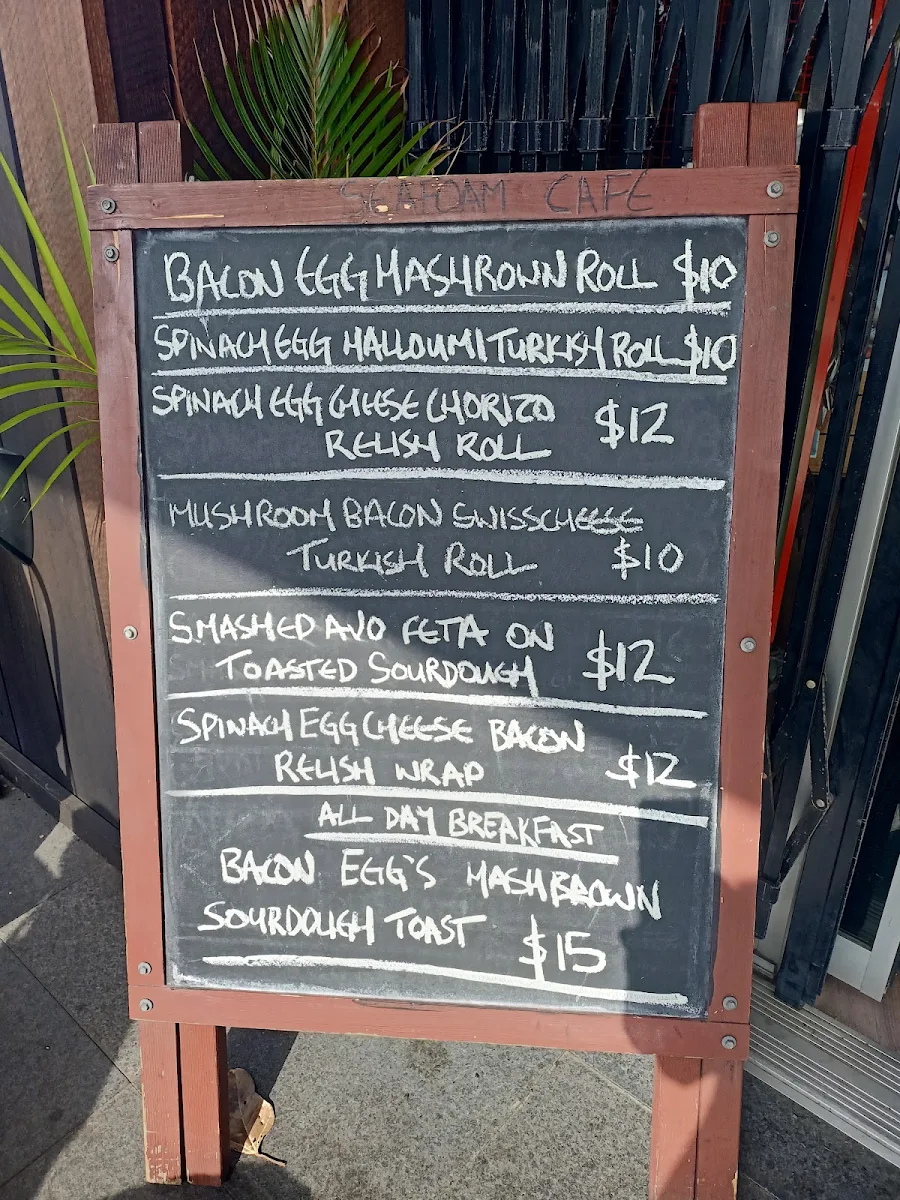 SEAFOAM CAFE
BACON EGG HASHROWN ROLL $10
SPINACH EGG HALLOUMI TURKISH ROLL $10
SPINACH EGG CHEESE CHORIZO $12
RELISH ROLL
MUSHROOM BACON SWISSCHEESE
TURKISH ROLL $10
SMASHED AVO FETA ON
TOASTED SOURDOUGH $12
SPINACH EGG CHEESE BACON
RELISH WRAP $12
ALL DAY BREAKFAST
BACON EGG'S HASHBROWN
SOURDOUGH TOAST $15